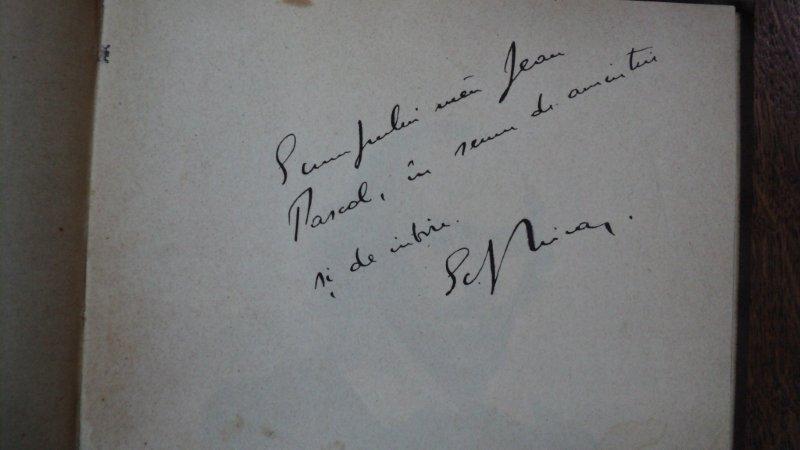 Scumpului meu Jean
Pascal, în semn de amintire
și de iubire.